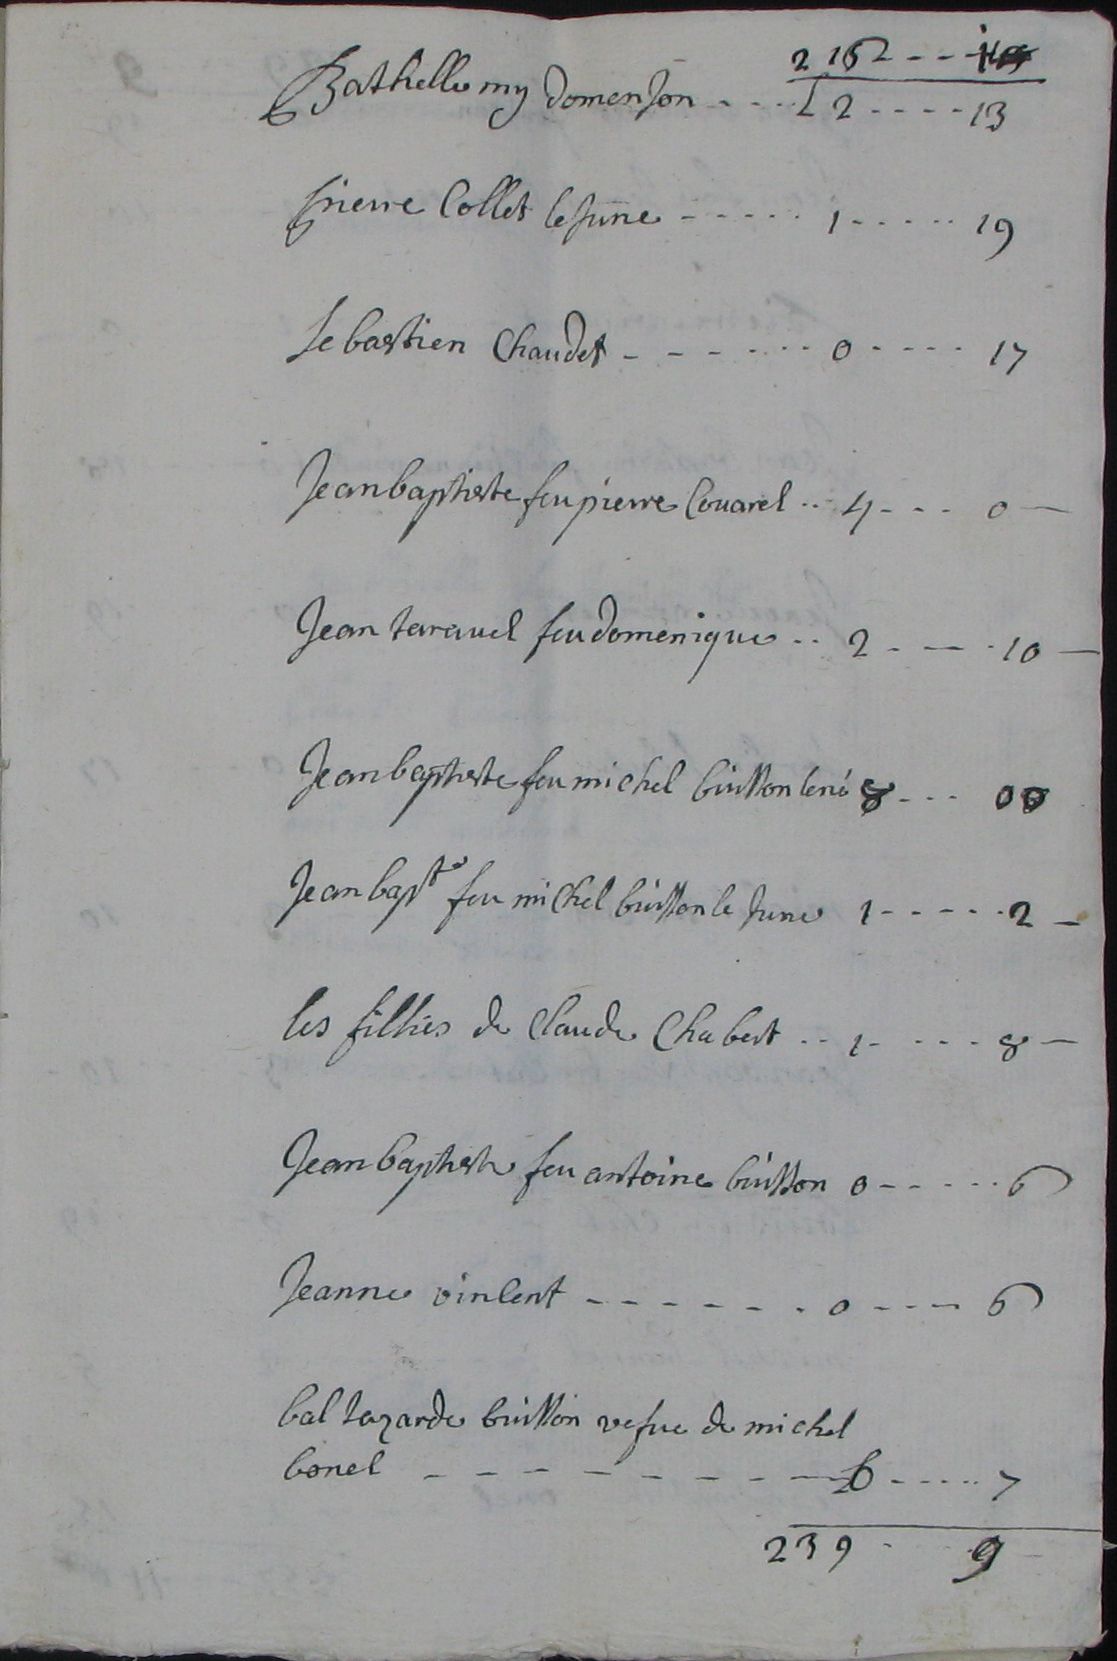 2 1 6 2 - - -
Bathellemy domenson - - - L 2 - - - - 13
pierre Collet lejune - - - - - 1 - - - - - 19
Sebastien Chaudet - - - - - - 0 - - - - 17
Jeanbaptiste feu pierre Couarel - - 4 - - - 0 -
Jean taravel feu domenique - - 2 - - - 10 -
Jeanbaptiste feu michel buisson lené 8 - - - 00
Jean bapte feu michel buisson le June 1 - - - - - 2 -
les fillies de Claude Chabert - - 1 - - - - 8 -
Jean baptiste feu antoine buisson 0 - - - - - 6
Jeanne vincent - - - - - - - 0 - - - - 6
baltazarde buisson vefue de michel
bonel - - - - - - - - - - - - - - 7
239 - 9